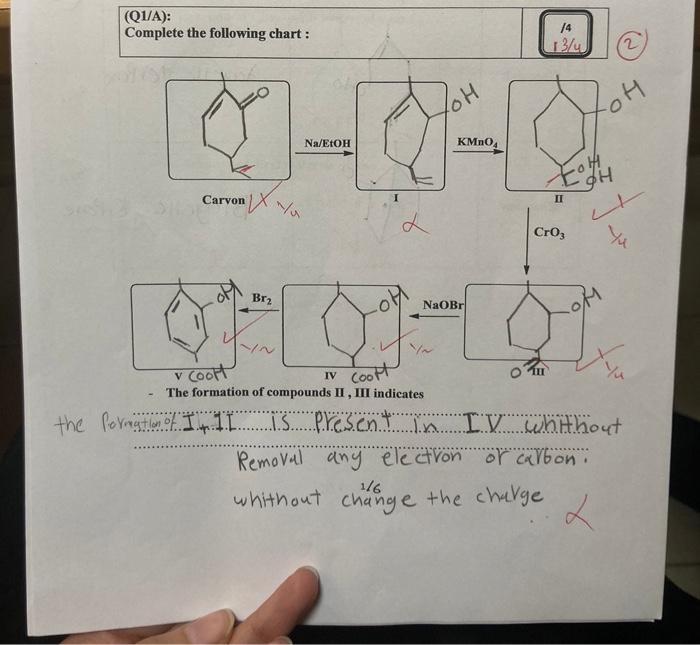 (Q1/A):
Complete the following chart :
/4
1 3/4
2
O
OH
OH
Na/EtOH
KMnO4
OH
OH
Carvon
1/4
I
II
1/4
CrO3
OH
Br2
OH
NaOBr
OH
1/2
1/2
1/4
V COOH
IV COOH
O III
- The formation of compounds II , III indicates
the formation of I, II is Present in IV whithout
Removal any electron or carbon.
1/6
whithout change the charge